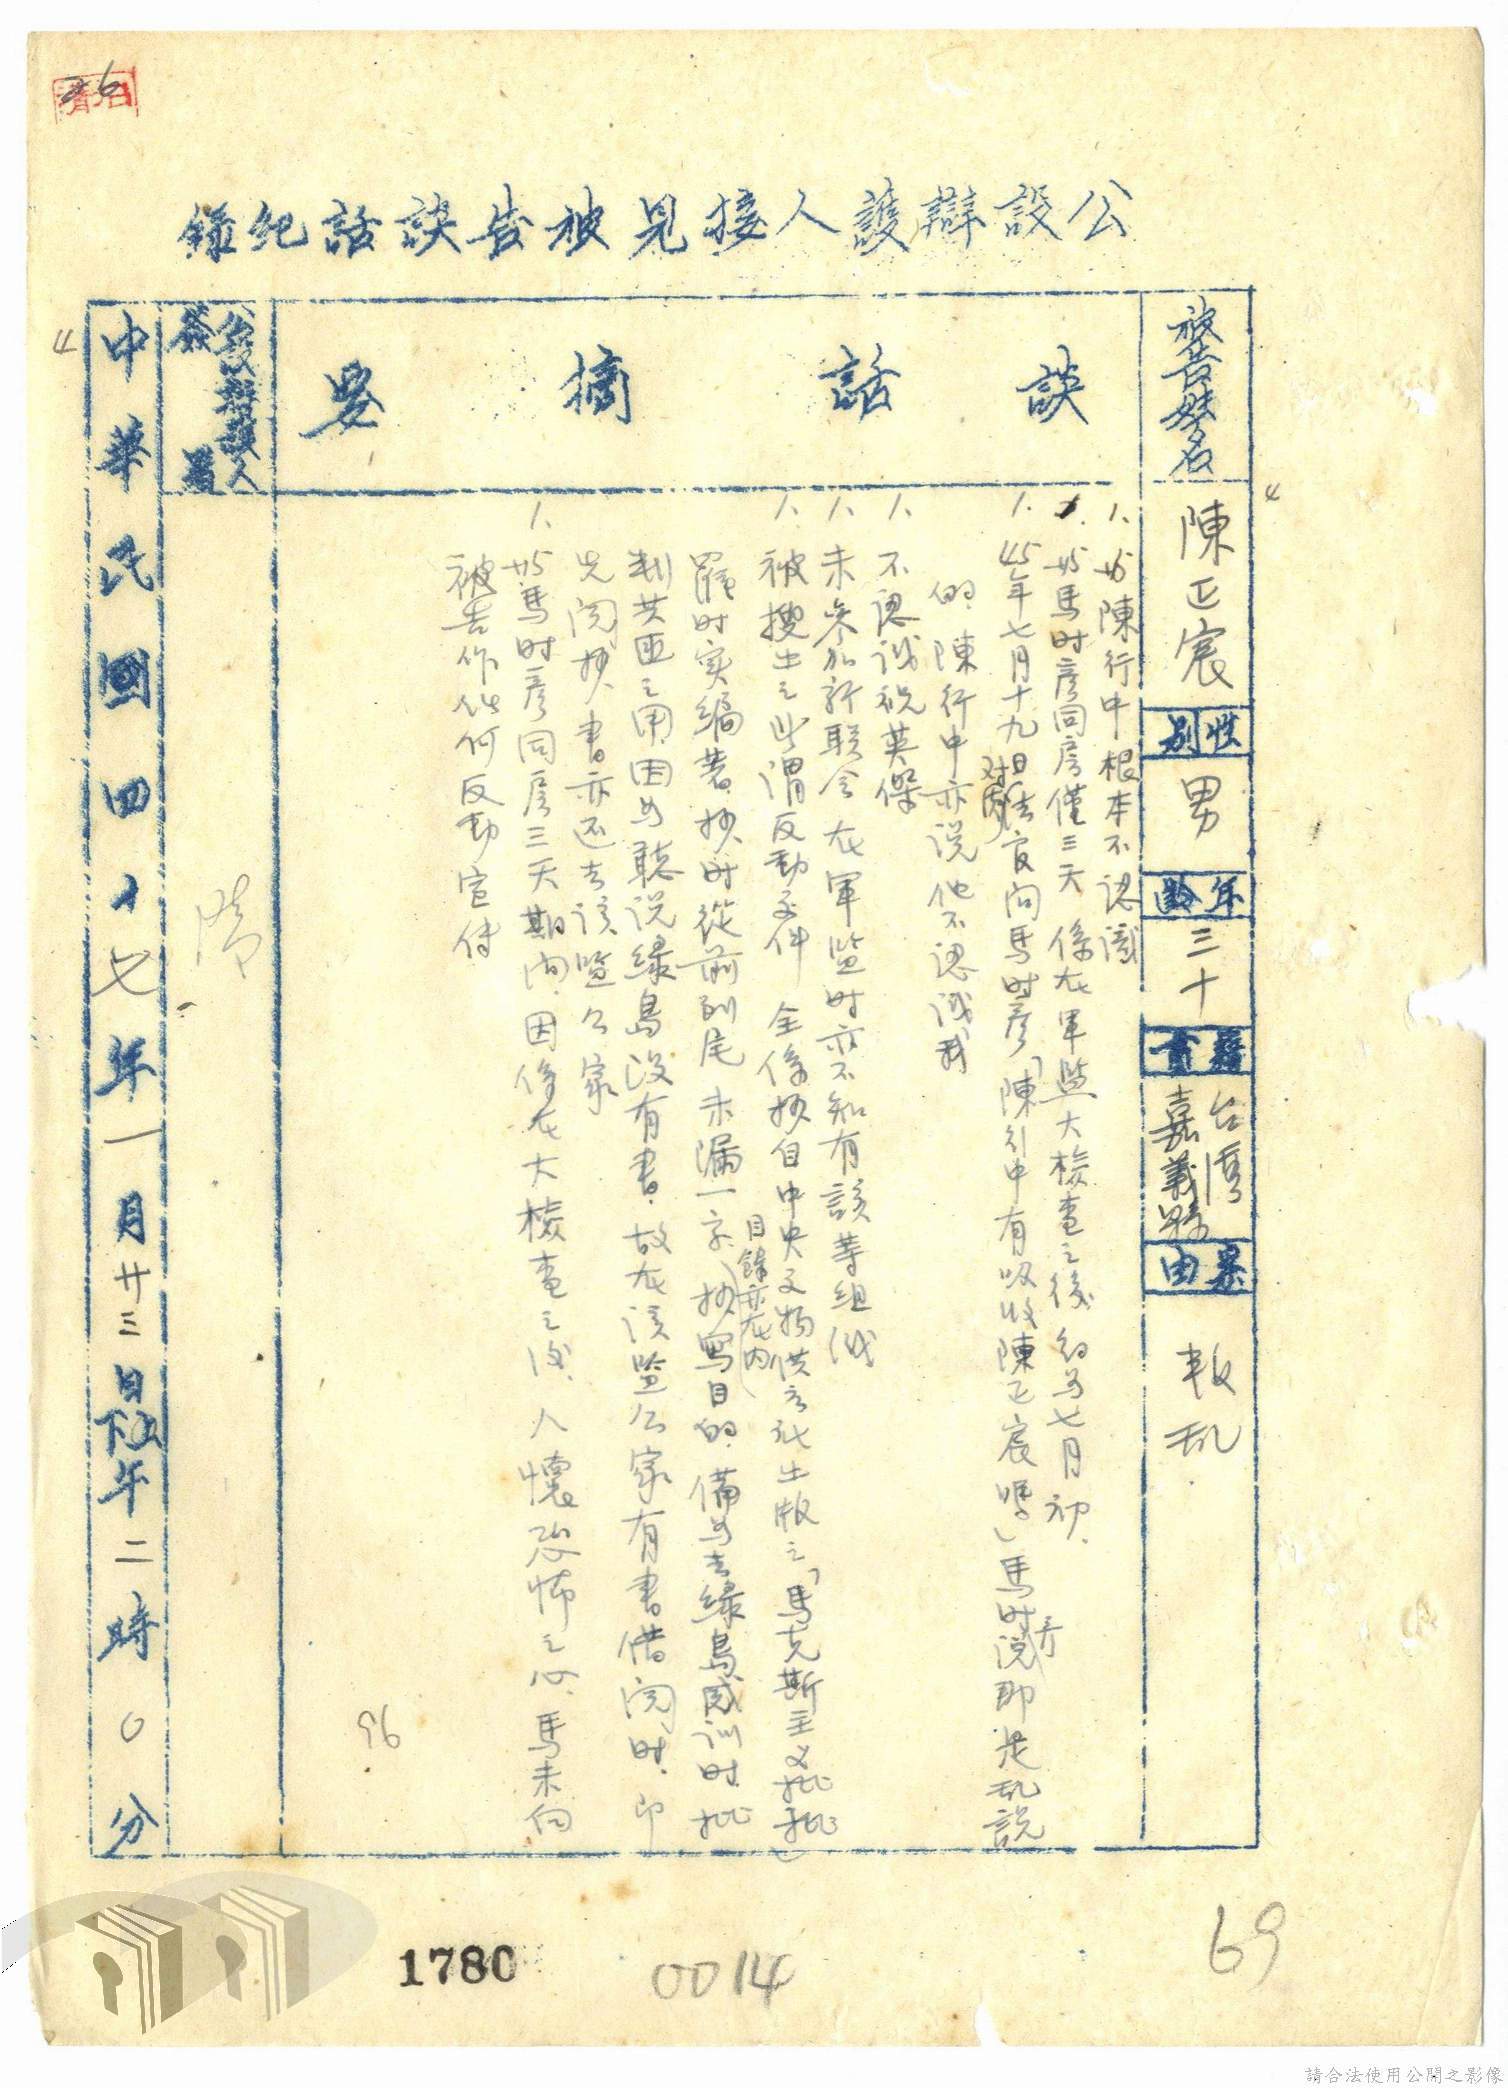 26
公設辯護人接見被告談話紀錄
被告姓名
陳正宸
性別
男
年齡
三十
籍貫
台灣
嘉義縣
案由
叛乱
談話摘要
1、與陳行中根本不認識
1、與馬时彥同房僅三天 係在軍監大檢查之後約為七月初、
1、45年七月十九日法官問馬时彥「陳行中有吸收陳正宸嗎」馬时彥说那是乱說
对质
的、陳行中亦说他不認识我
1、不認识祝英傑
1、未參加新联会 在軍監时亦不知有該等組织
1、被搜出之所謂反動文件 全係抄自中央文物供应社出版之「馬克斯主义批
目錄亦在內
羅时实編著、抄时從前到尾未漏一字、抄寫目的、備為去綠島感训时批
判共匪之用、因為聽说綠島没有書、故在该監公家有書借閱时、即
先閱抄、書亦还去該監公家
1、與馬时彥同房三天期間、因係在大檢查之後、人懷恐怖之心、馬未向
被告作任何反動宣传
公設辯護人
簽署
中華民國四十七年一月廿三日下上午二時0分
4
4
96
69
1780
0014
請合法使用公開之影像